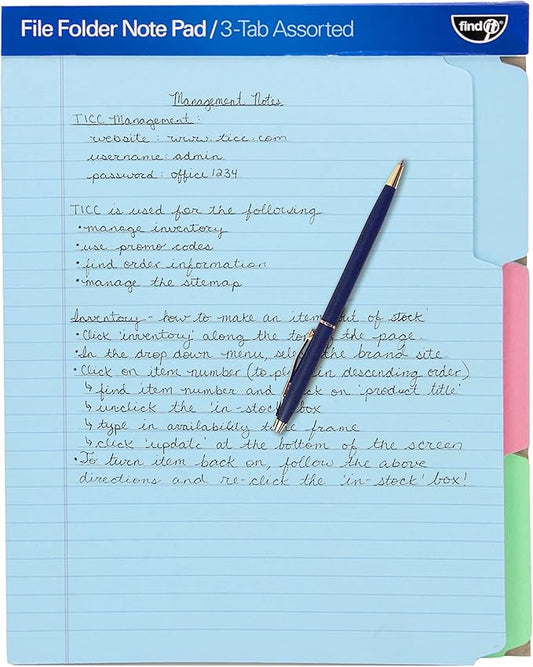 File Folder Note Pad / 3-Tab Assorted
find it
Management Notes
TICC Management :
website : www. ticc. com
username: admin
password: office 1234
TICC is used for the following
• manage inventory
• use promo codes
• find order information
• manage the sitemap
Inventory - how to make an item out of stock
• Click 'inventory' along the top of the page.
• In the drop down menu, select the brand site.
• Click on item number (to in descending order)
↳ find item number and click on 'product title'
↳ unclick the 'in-stock' box
↳ type in availability time frame
↳ click 'update' at the bottom of the screen
• To turn item back on, follow the above
directions and re-click the 'in-stock' box!